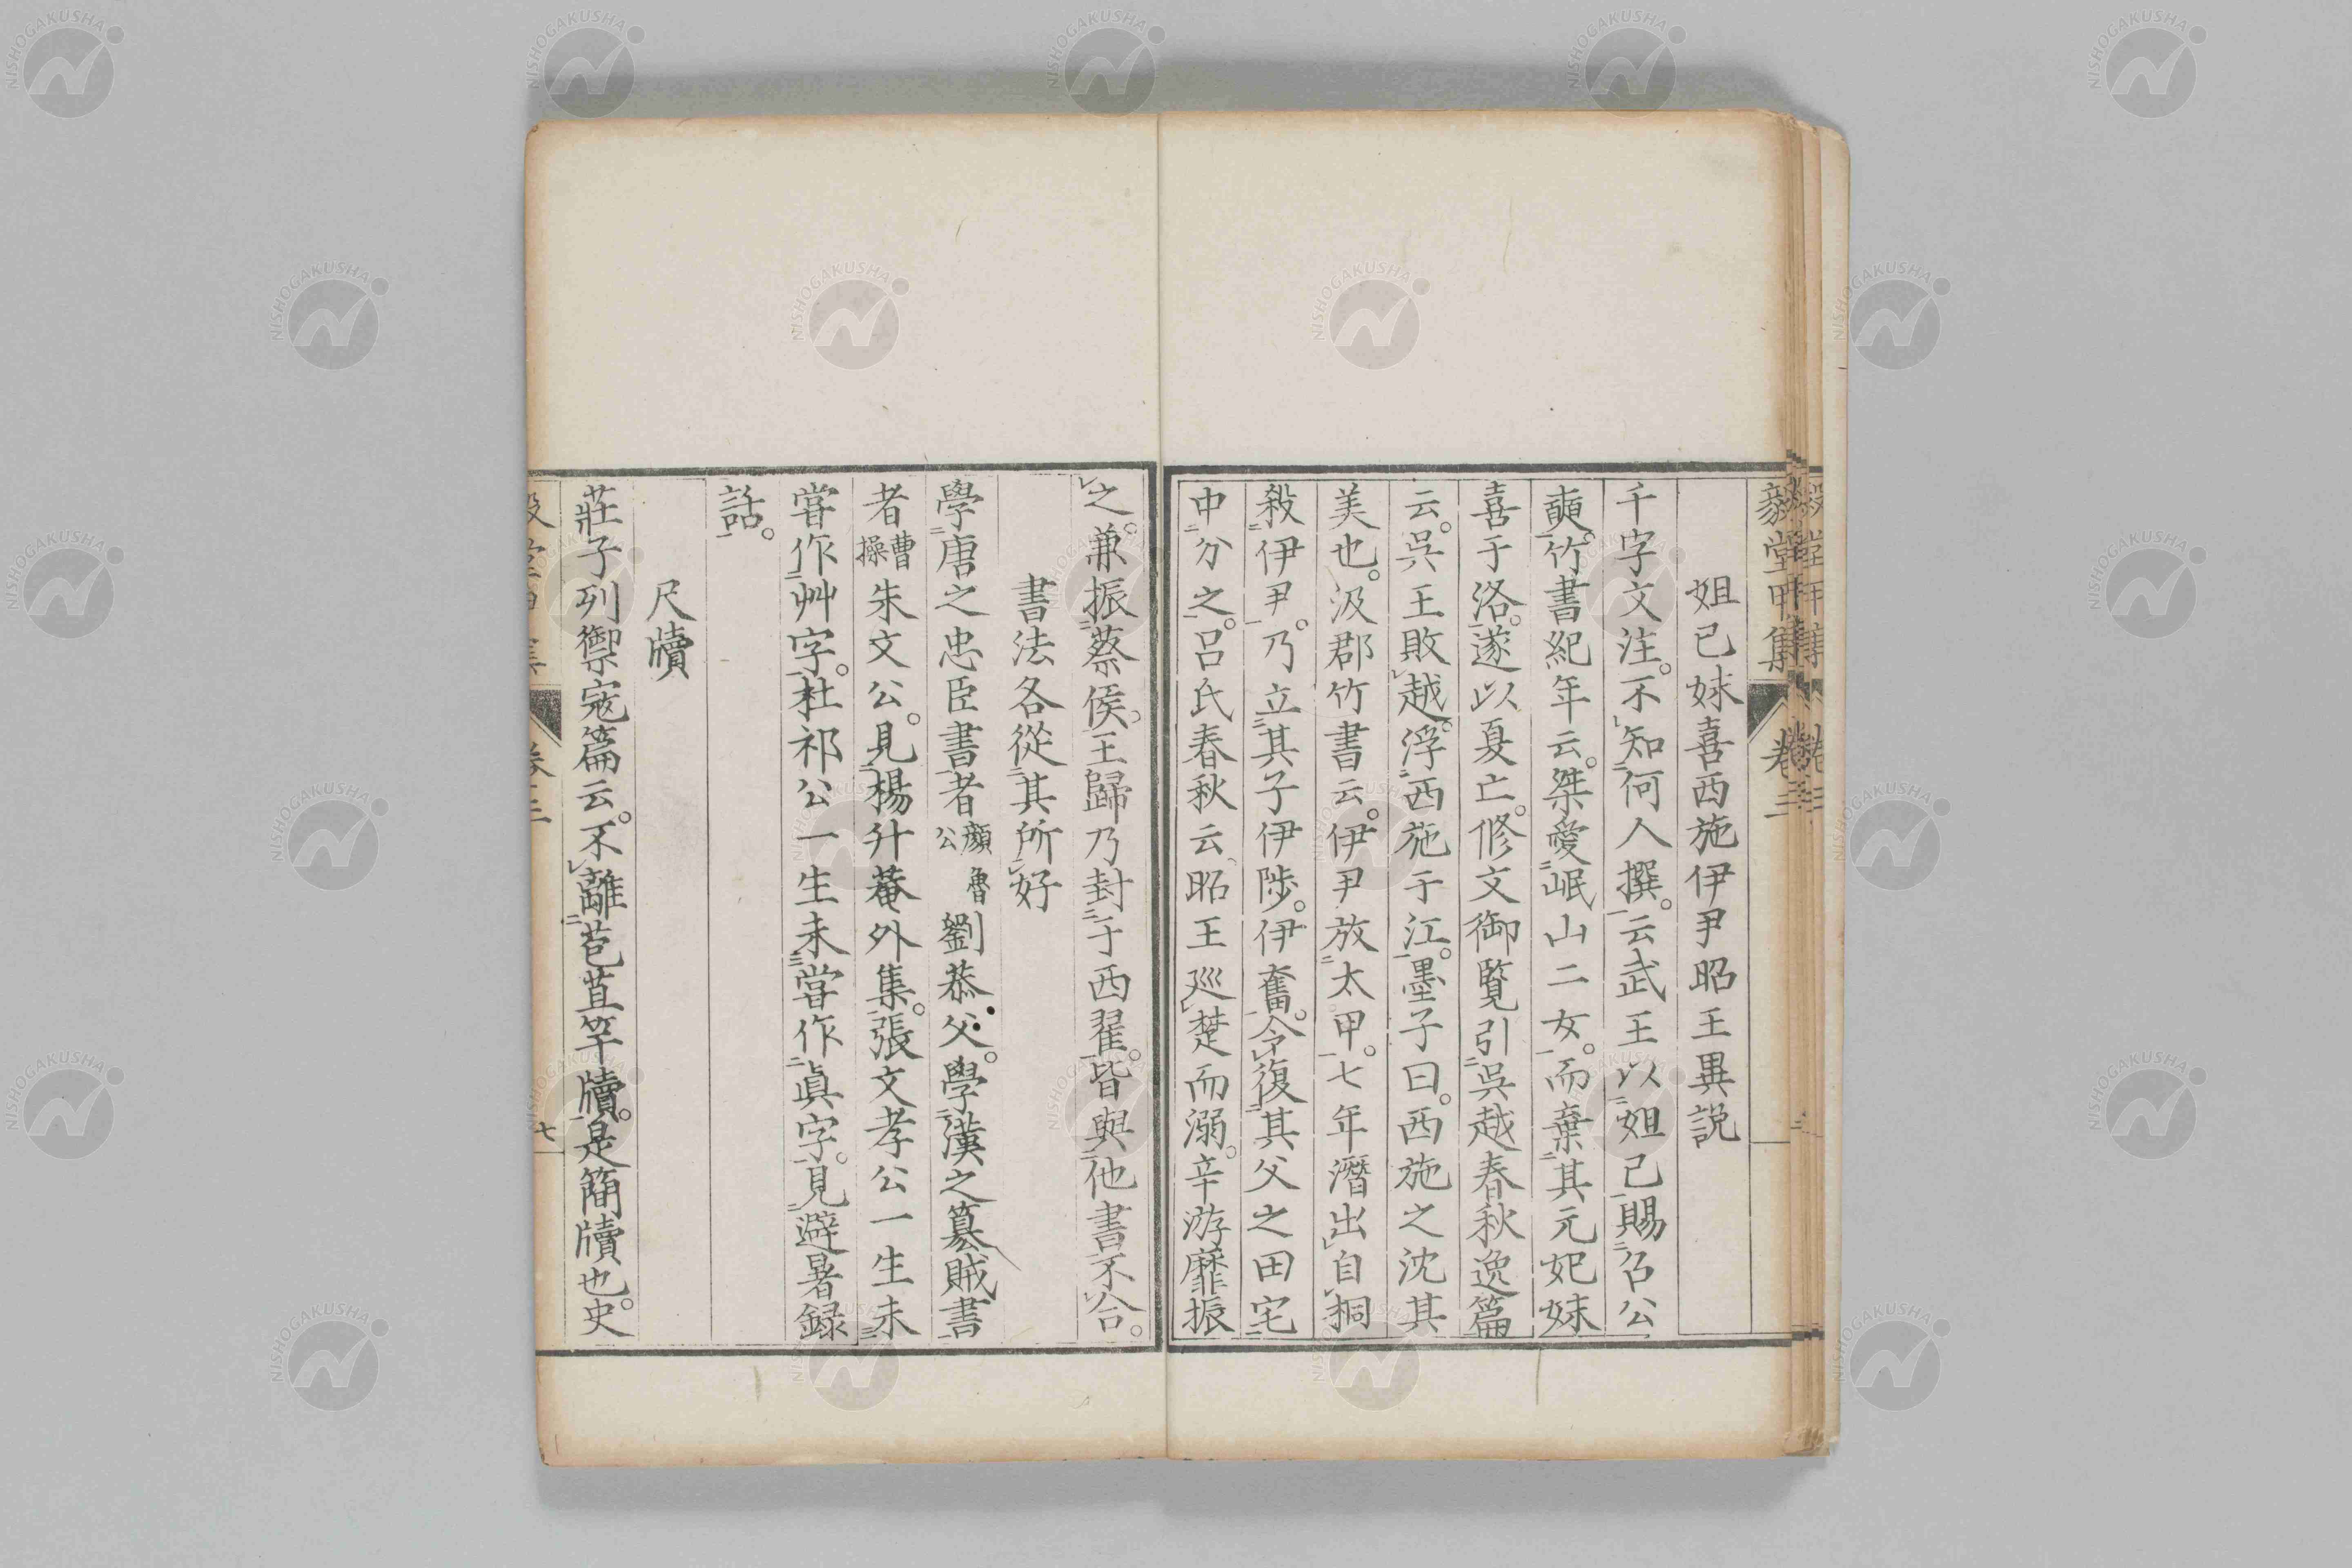 毅堂丙集 卷三
妲己妺喜西施伊尹昭王異説
千字文注。不知何人撰。云武王以妲己賜召公
奭。竹書紀年云。桀愛岷山二女。而棄其元妃妺
喜于洛。遂以夏亡。修文御覽引吳越春秋逸篇
云。吳王敗越。浮西施于江。墨子曰。西施之沈其
美也。汲郡竹書云。伊尹放太甲。七年潛出自桐
殺伊尹。乃立其子伊陟。伊奮。令復其父之田宅
中分之。呂氏春秋云。昭王巡楚而溺。辛游靡振
之。兼振蔡侯。王歸乃封于西翟。皆與他書不合。
書法各從其所好
學唐之忠臣書者顏魯公劉恭父。學漢之簒賊書
者曹操朱文公。見楊升菴外集。張文孝公一生未
甞作艸字。杜祁公一生未甞作眞字。見避暑録
話。
尺牘
莊子列禦寇篇云。不離苞苴竿牘。是簡牘也。史
七
NISHOGAKUSHA